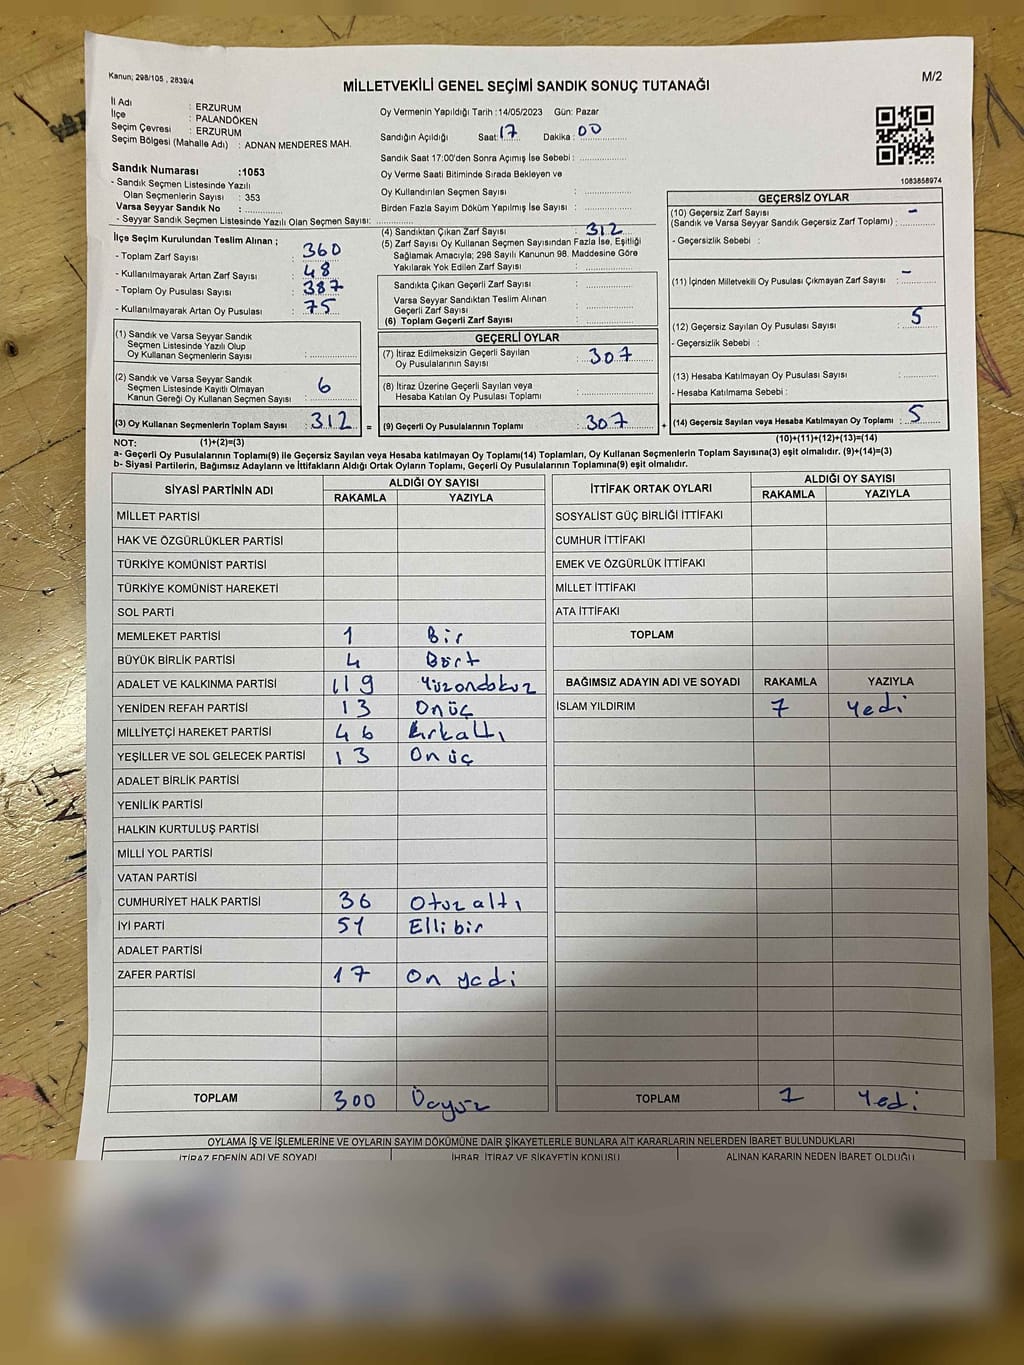 Kanun; 298/105 , 2839/4
M/2
MİLLETVEKİLİ GENEL SEÇİMİ SANDIK SONUÇ TUTANAĞI
İl Adı : ERZURUM
İlçe : PALANDÖKEN
Seçim Çevresi : ERZURUM
Seçim Bölgesi (Mahalle Adı) : ADNAN MENDERES MAH.
Sandık Numarası :1053
- Sandık Seçmen Listesinde Yazılı
Olan Seçmenlerin Sayısı : 353
Varsa Seyyar Sandık No :
- Seyyar Sandık Seçmen Listesinde Yazılı Olan Seçmen Sayısı:
Oy Vermenin Yapıldığı Tarih :14/05/2023 Gün: Pazar
Sandığın Açıldığı Saat: 17 Dakika : 00
Sandık Saat 17:00'den Sonra Açılmış İse Sebebi :
Oy Verme Saati Bitiminde Sırada Bekleyen ve
Oy Kullandırılan Seçmen Sayısı :
Birden Fazla Sayım Döküm Yapılmış İse Sayısı :
1083858974
İlçe Seçim Kurulundan Teslim Alınan ;
- Toplam Zarf Sayısı : 360
- Kullanılmayarak Artan Zarf Sayısı : 48
- Toplam Oy Pusulası Sayısı : 387
- Kullanılmayarak Artan Oy Pusulası : 75
(1) Sandık ve Varsa Seyyar Sandık
Seçmen Listesinde Yazılı Olup
Oy Kullanan Seçmenlerin Sayısı :
(2) Sandık ve Varsa Seyyar Sandık
Seçmen Listesinde Kayıtlı Olmayan
Kanun Gereği Oy Kullanan Seçmen Sayısı : 6
(3) Oy Kullanan Seçmenlerin Toplam Sayısı : 312 =
(4) Sandıktan Çıkan Zarf Sayısı : 312
(5) Zarf Sayısı Oy Kullanan Seçmen Sayısından Fazla İse, Eşitliği
Sağlamak Amacıyla; 298 Sayılı Kanunun 98. Maddesine Göre
Yakılarak Yok Edilen Zarf Sayısı :
Sandıkta Çıkan Geçerli Zarf Sayısı :
Varsa Seyyar Sandıktan Teslim Alınan
Geçerli Zarf Sayısı :
(6) Toplam Geçerli Zarf Sayısı :
GEÇERLİ OYLAR
(7) İtiraz Edilmeksizin Geçerli Sayılan
Oy Pusulalarının Sayısı : 307
(8) İtiraz Üzerine Geçerli Sayılan veya
Hesaba Katılan Oy Pusulası Toplamı :
(9) Geçerli Oy Pusulalarının Toplamı : 307 +
GEÇERSİZ OYLAR
(10) Geçersiz Zarf Sayısı : -
(Sandık ve Seyyar Sandık Geçersiz Zarf Toplamı) :
- Geçersizlik Sebebi :
(11) İçinden Milletvekili Oy Pusulası Çıkmayan Zarf Sayısı : -
(12) Geçersiz Sayılan Oy Pusulası Sayısı : 5
- Geçersizlik Sebebi :
(13) Hesaba Katılmayan Oy Pusulası Sayısı :
- Hesaba Katılmama Sebebi :
(14) Geçersiz Sayılan veya Hesaba Katılmayan Oy Toplamı : 5
NOT: (1)+(2)=(3) (10)+(11)+(12)+(13)=(14)
a- Geçerli Oy Pusulalarının Toplamı(9) ile Geçersiz Sayılan veya Hesaba katılmayan Oy Toplamı(14) Toplamları, Oy Kullanan Seçmenlerin Toplam Sayısına(3) eşit olmalıdır. (9)+(14)=(3)
b- Siyasi Partilerin, Bağımsız Adayların ve İttifakların Aldığı Ortak Oyların Toplamı, Geçerli Oy Pusulalarının Toplamına(9) eşit olmalıdır.
SİYASİ PARTİNİN ADI ALDIĞI OY SAYISI
RAKAMLA YAZIYLA
MİLLET PARTİSİ
HAK VE ÖZGÜRLÜKLER PARTİSİ
TÜRKİYE KOMÜNİST PARTİSİ
TÜRKİYE KOMÜNİST HAREKETİ
SOL PARTİ
MEMLEKET PARTİSİ 1 Bir
BÜYÜK BİRLİK PARTİSİ 4 Dört
ADALET VE KALKINMA PARTİSİ 119 Yüzondokuz
YENİDEN REFAH PARTİSİ 13 Onüç
MİLLİYETÇİ HAREKET PARTİSİ 46 Kırkaltı
YEŞİLLER VE SOL GELECEK PARTİSİ 13 Onüç
ADALET BİRLİK PARTİSİ
YENİLİK PARTİSİ
HALKIN KURTULUŞ PARTİSİ
MİLLİ YOL PARTİSİ
VATAN PARTİSİ
CUMHURİYET HALK PARTİSİ 36 Otuzaltı
İYİ PARTİ 51 Ellibir
ADALET PARTİSİ
ZAFER PARTİSİ 17 On yedi
TOPLAM 300 Üçyüz
İTTİFAK ORTAK OYLARI ALDIĞI OY SAYISI
RAKAMLA YAZIYLA
SOSYALİST GÜÇ BİRLİĞİ İTTİFAKI
CUMHUR İTTİFAKI
EMEK VE ÖZGÜRLÜK İTTİFAKI
MİLLET İTTİFAKI
ATA İTTİFAKI
TOPLAM
BAĞIMSIZ ADAYIN ADI VE SOYADI RAKAMLA YAZIYLA
İSLAM YILDIRIM 7 Yedi
TOPLAM 7 Yedi
OYLAMA İŞ VE İŞLEMLERİNE VE OYLARIN SAYIM DÖKÜMÜNE DAİR ŞİKAYETLERLE BUNLARA AİT KARARLARIN NELERDEN İBARET BULUNDUKLARI
İTİRAZ EDENİN ADI VE SOYADI İHBAR, İTİRAZ VE ŞİKAYETİN KONUSU ALINAN KARARIN NEDEN İBARET OLDUĞU